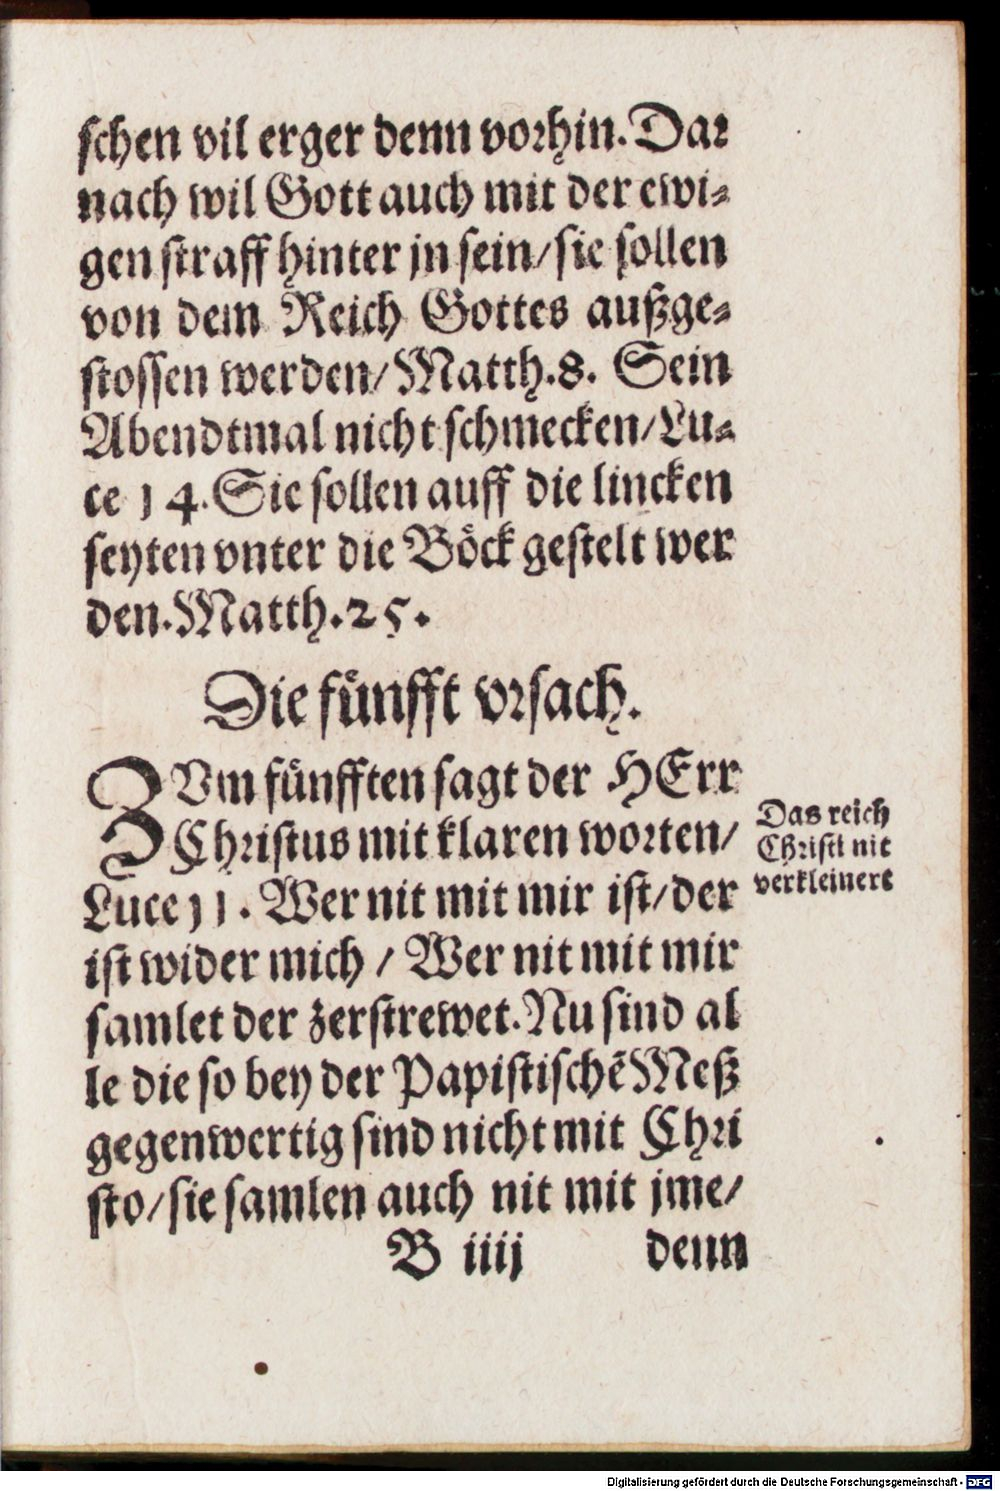 schen vil erger denn vorhin. Dar
nach wil Gott auch mit der ewi⸗
gen straff hinter jn sein/ sie sollen
von dem Reich Gottes außge⸗
stossen werden/ Matth. 8. Sein
Abendtmal nicht schmecken/ Lu⸗
ce 14. Sie sollen auff die lincken
seyten vnter die Böck gestelt wer
den. Matth. 25.
Die fünfft vrsach.
ZVm fünfften sagt der HErr
Christus mit klaren worten/
Luce 11. Wer nit mit mir ist/ der
ist wider mich / Wer nit mit mir
samlet der zerstrewet. Nu sind al
le die so bey der Papistischẽ Meß
gegenwertig sind nicht mit Chri
sto/ sie samlen auch nit mit jme/
B iiij denn
Das reich
Christi nit
verkleinert
Digitalisierung gefördert durch die Deutsche Forschungsgemeinschaft - DFG